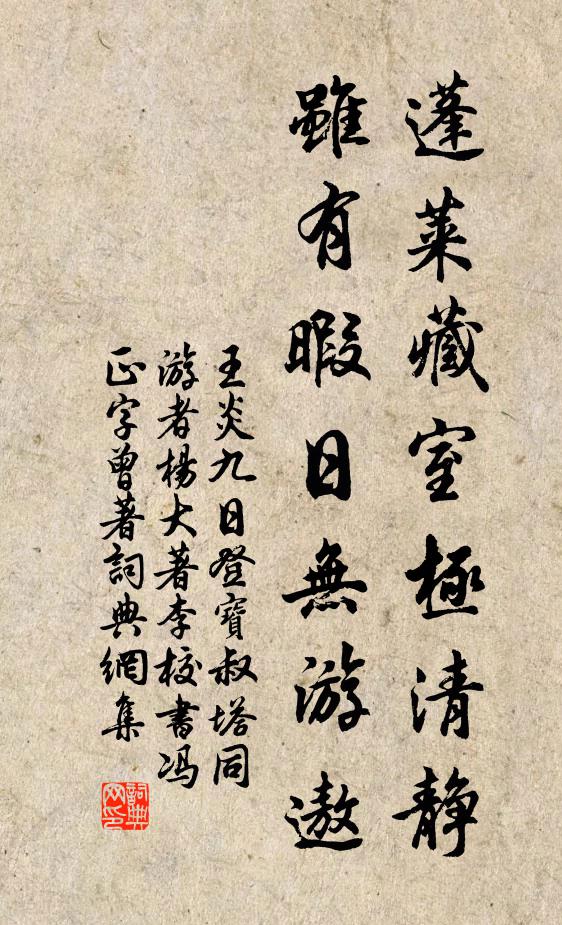 蓬莱藏室極清静
雖有暇日無游遨
王炎九日登寶叔塔同
游者楊大著李校書馮
正字曾著詞典網集
詞典
网印